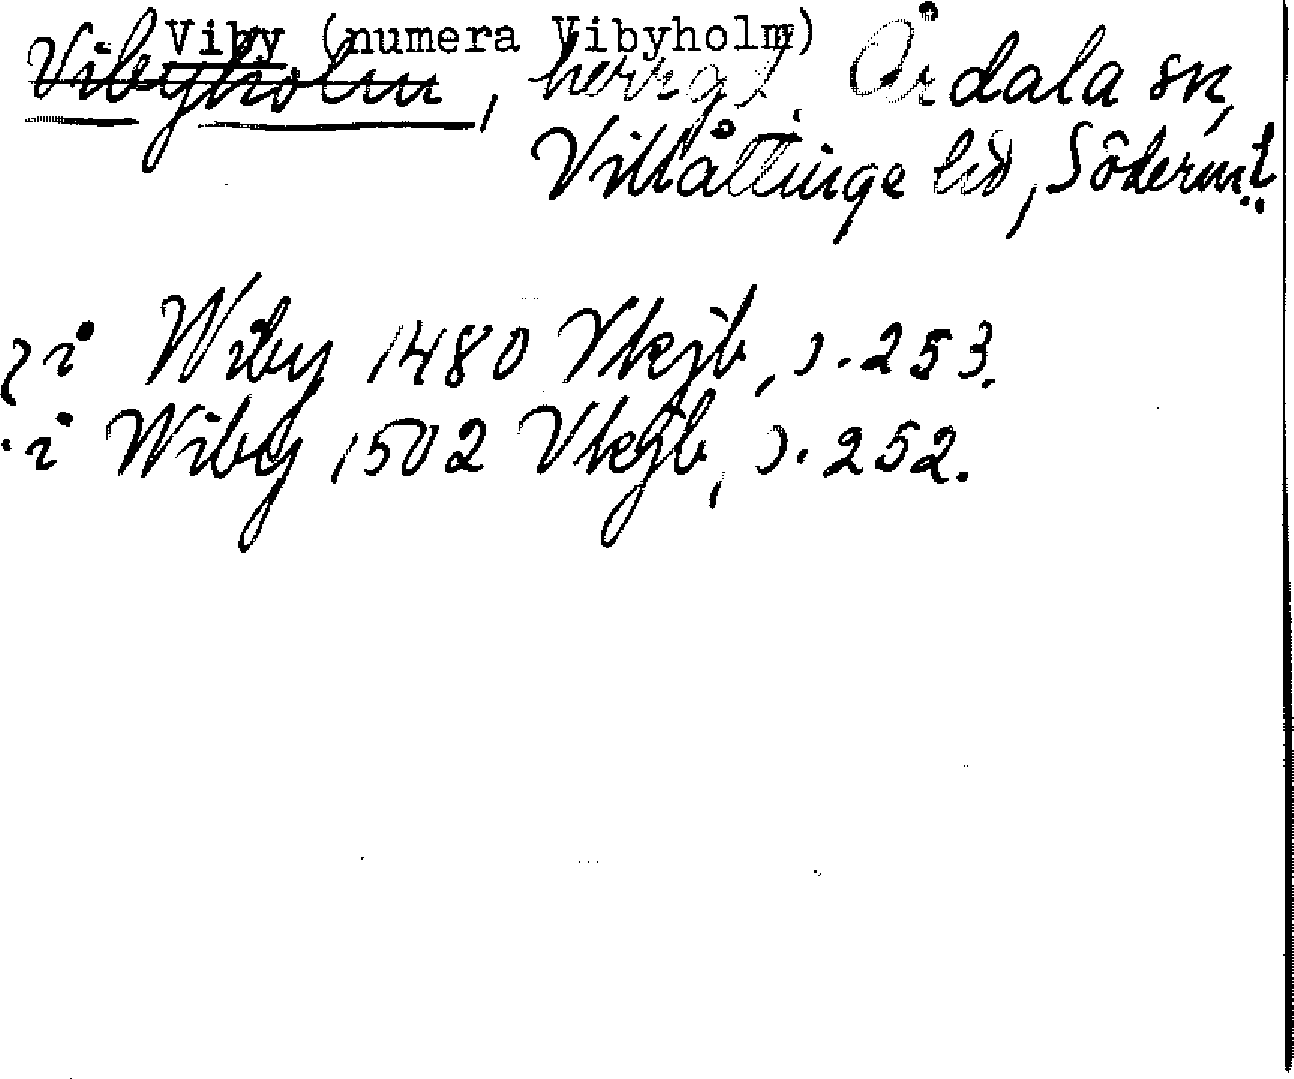 Viby (numera Vibyholm)
Vibyholm, herrgd. Årdala sn,
Villåttinge hd, Söderml.
i Wiby 1480 Vkjb, s. 253.
i Wiby 1502 Vkjb, s. 252.